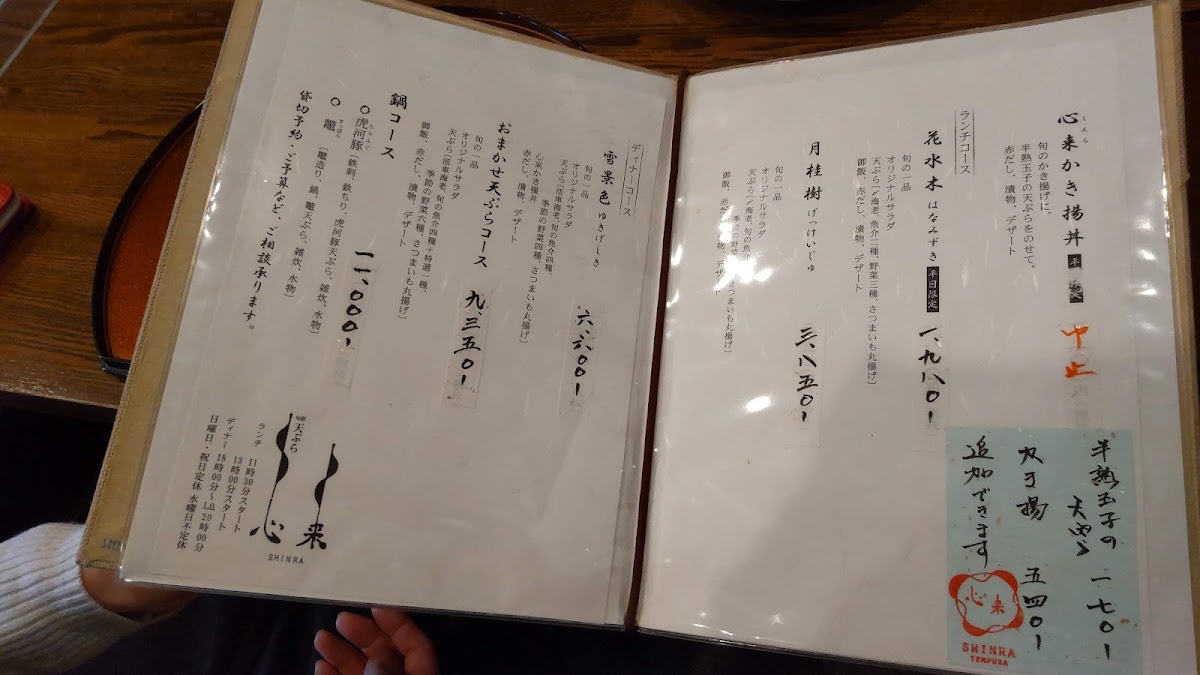 心来かき揚丼 平
しんら
中止
旬のかき揚げに、
半熟玉子の天ぷらをのせて。
赤だし、漬物、デザート
ランチコース
花水木 はなみずき 平日限定 一、九八〇ー
旬の一品
オリジナルサラダ
天ぷら〔〆海老、魚介二種、野菜三種、さつまいも丸揚げ〕
御飯、赤だし、漬物、デザート
月桂樹 げっけいじゅ 三、八五〇ー
旬の一品
オリジナルサラダ
天ぷら〔〆海老、旬の魚介
季節の野菜 さつまいも丸揚げ〕
御飯、赤だし、漬物、デザート
半熟玉子の
天ぷら 一七〇ー
丸す揚 五四〇ー
追加できます
心来
SHINRA
TEMPURA
ディナーコース
雪景色 ゆきげしき 六、六〇〇ー
旬の一品
オリジナルサラダ
天ぷら〔活車海老、旬の魚介四種、
季節の野菜四種、さつまいも丸揚げ〕
心来かき揚丼
赤だし、漬物、デザート
おまかせ天ぷらコース 九、三五〇ー
旬の一品
オリジナルサラダ
天ぷら〔活車海老、旬の魚介四種+特選一種、
季節の野菜六種、さつまいも丸揚げ〕
御飯、赤だし、漬物、デザート
鍋コース 一一、〇〇〇ー
○ 虎河豚 〔鉄刺、鉄ちり、虎河豚天ぷら、雑炊、水物〕
とらふぐ
○ 鼈 〔鼈造り、鍋、鼈天ぷら、雑炊、水物〕
すっぽん
貸切予約・ご予算など、ご相談承ります。
天ぷら
心来
SHINRA
ランチ 11時30分スタート
13時00分スタート
ディナー 18時00分〜L.O.20時00分
日曜日・祝日定休 水曜日不定休